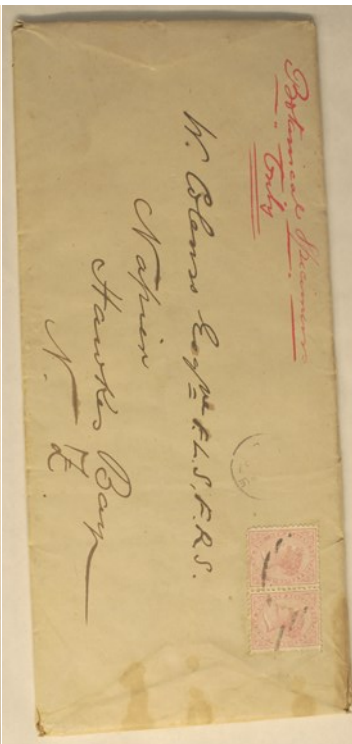 Botanical Specimens
Only
W. Colenso Esqre F.L.S. F.R.S.
Napier
Hawkes Bay
N. Z.